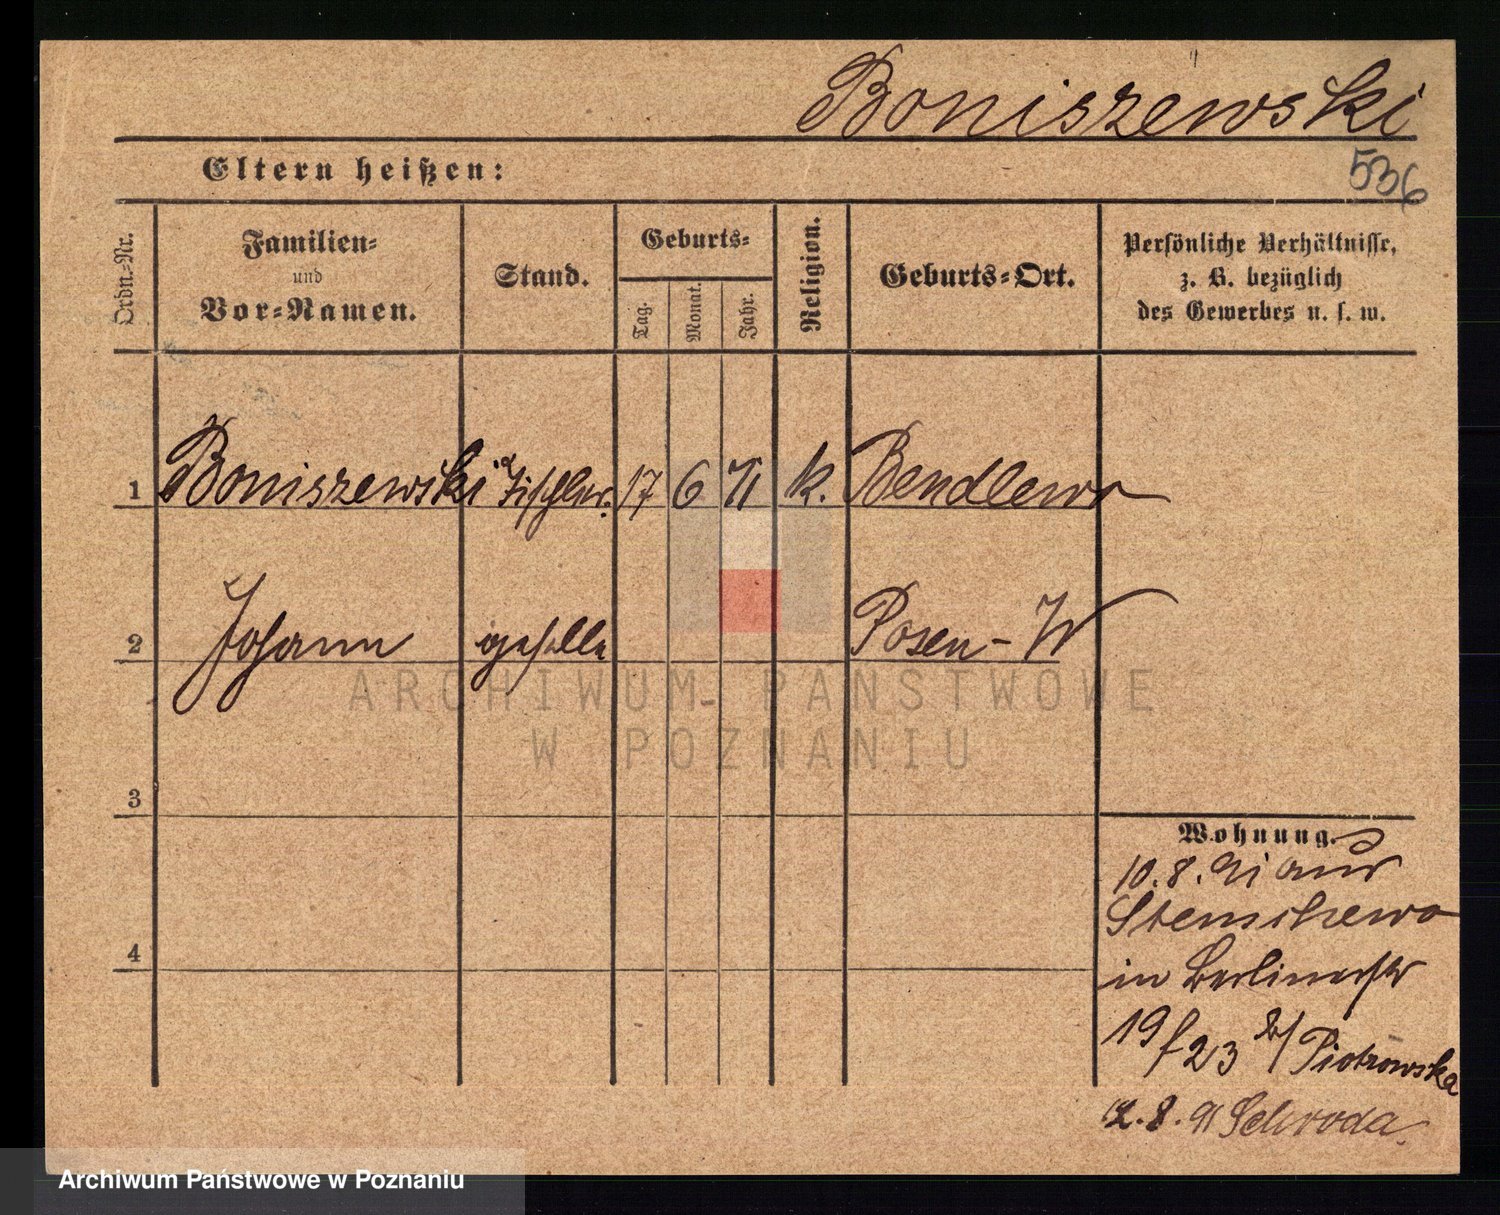 Boniszewski
536
Eltern heißen:
Ordn.-Nr.
Familien-
und
Vor-Namen.
Stand.
Geburts-
Tag.
Monat.
Jahr.
Religion.
Geburts-Ort.
Persönliche Verhältnisse,
z. B. bezüglich
des Gewerbes u. s. w.
1 Boniszewski Tischler. 17 6 71 k. Bendlewo
2 Johann geselle Posen-W
3
4
Wohnung.
10.8.91 aus
Stenschewo
in Berlinerstr
19/23 b/ Piotrowska
12.8.91 Schroda.
ARCHIWUM PAŃSTWOWE
W POZNANIU
Archiwum Państwowe w Poznaniu